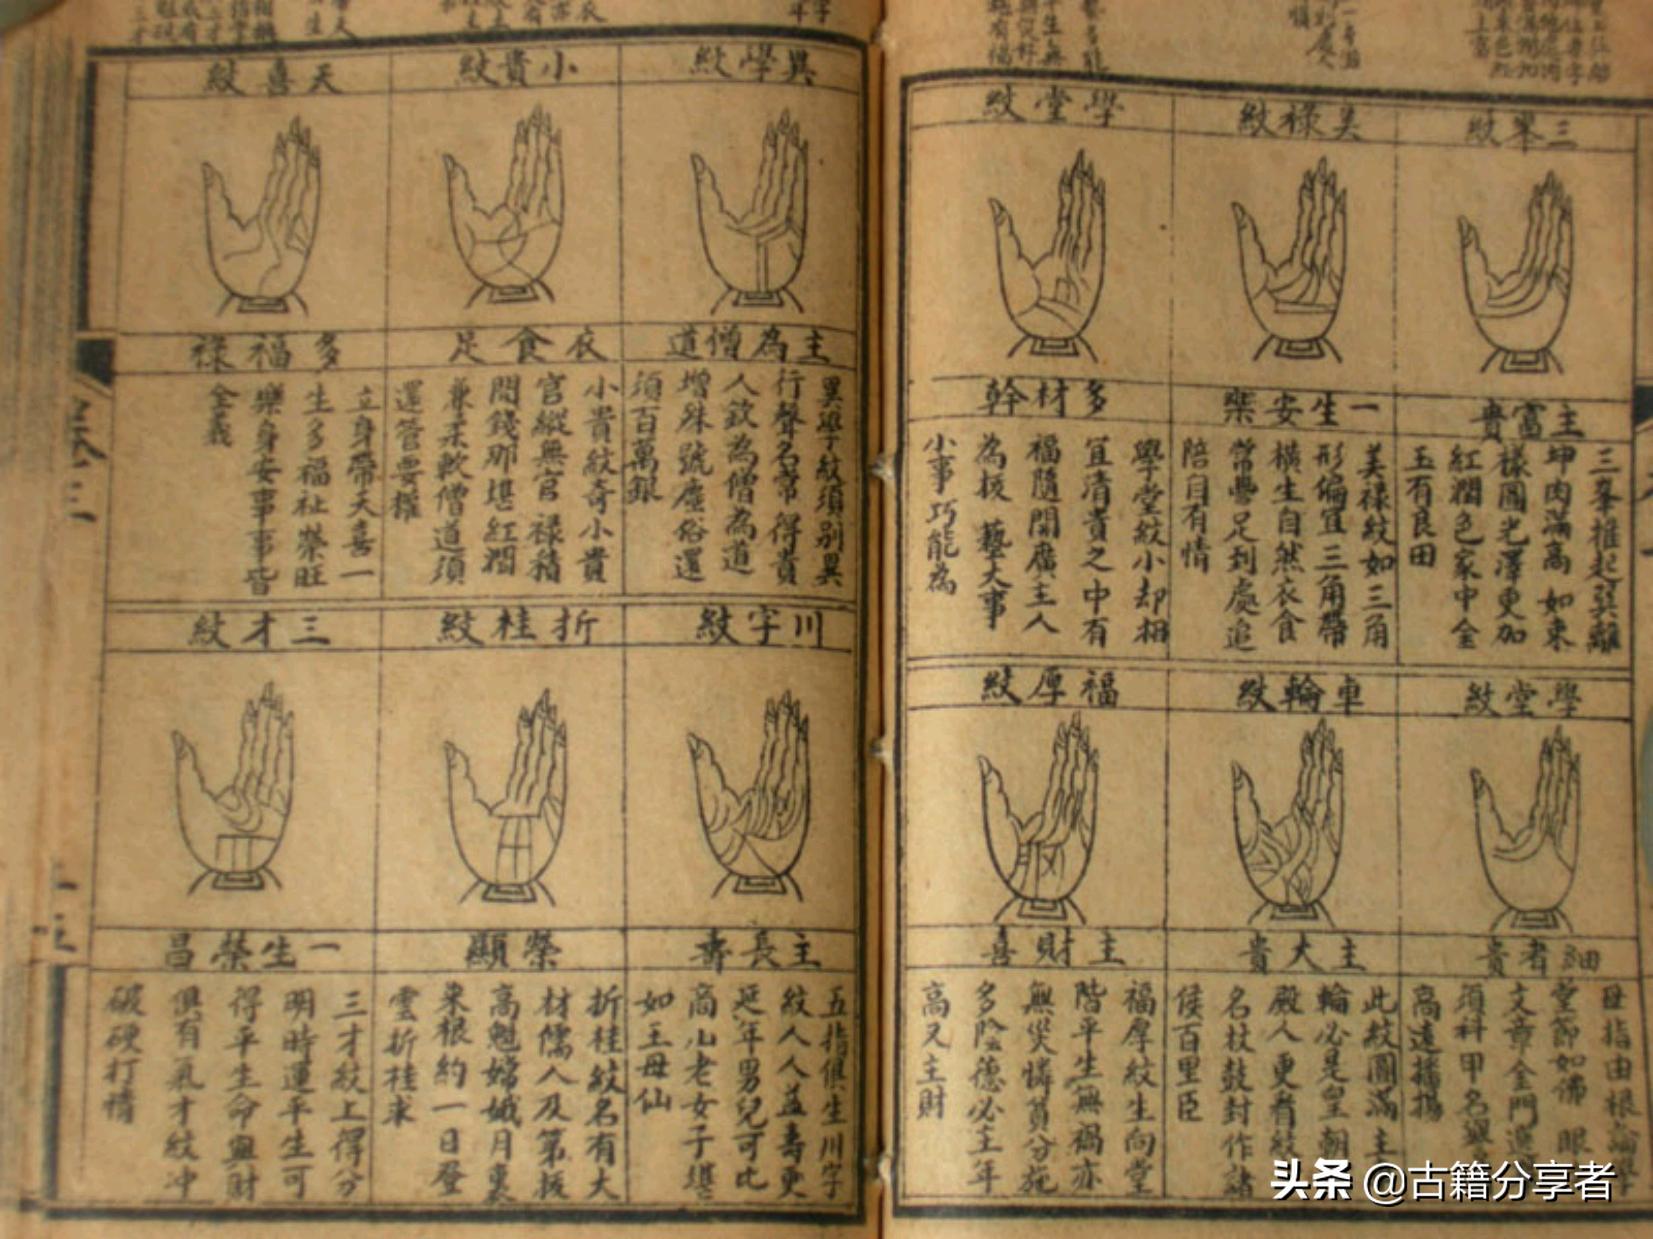 三峯紋
主富貴
三峯推起巽離
坤肉滿高如束
樣圓光澤更加
紅潤色家中金
玉有良田
美祿紋
一生安樂
美祿紋如三角
形偏宜三角帶
橫生自然衣食
常豐足到處追
陪自有情
學堂紋
多材幹
學堂紋小却相
宜清貴之中有
福隨間廣主人
為拔藝大事
小事巧能為
學堂紋
細者貴
母指由根論學
堂節如佛眼
文章金門選
須科甲名舉
高遠播揚
車輪紋
主大貴
此紋圓滿主
輪必是皇朝
殿人更看
名杖鼓封作諸
侯百里臣
福厚紋
主財喜
福厚紋生向堂
階平生無禍亦
無災憐貧分施
多陰德必主年
高又主財
異學紋
主為僧道
異學紋須別異
行聲名常得貴
人欽為僧為道
增殊號塵俗還
須百萬銀
小貴紋
衣食足
小貴紋奇小貴
官縱無官祿積
閒錢那堪紅潤
兼柔軟僧道須
還管要權
天喜紋
多福祿
立身帶天喜一
生多福祉榮旺
樂身安事事皆
全義
川字紋
主長壽
五指俱生川字
紋人人益壽更
延年男兒可比
商山老女子堪
如王母仙
折桂紋
榮顯
折桂紋名有大
材儒人及第拔
高魁嫦娥月裏
來根約一日登
雲折桂求
三才紋
一生榮昌
三才紋上得分
明時運平生可
得平生命與財
俱有氣才紋冲
破硬打
卷三
頭条 @古籍分享者